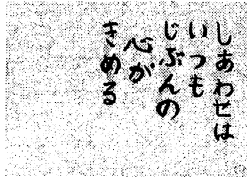 しあわせは
いつも
じぶんの
心が
きめる